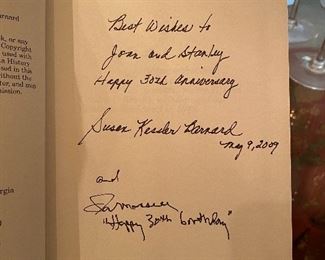 arnard
k, or any
Copyright
used with
a History
sed in this
without the
ter, and nun
mission.
rgin
Best Wishes to
Joan and Stanley
Happy 30th Anniversary
Susan Kessler Barnard
May 9, 2009
and
"Happy 30th birthday"